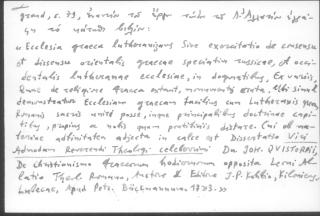 grand, c. 79, ἐναντίον τοῦ ἔργου τούτου τοῦ
τὸ
« Ecclesia graeca lutheranizans Sive exercitatio de consensu
et dissensu orientalis graecae speciatim russicae, et occi-
dentalis lutheranae ecclesiae, in dogmatibus, Ex variis,
Quae de religione Graeca extant, monumentis erecta, Ubi simul
demonstratur Ecclesiam Graecam facilius cum Lutheranis quam
Romanis sacris uniri posse, inque principalibus doctrinae capi-
tibus, propius a nobis quam pontificiis distare. Cui ob ma-
teriae adfinitatem adjecta in calce est Dissertatio Viri
Admodum Reverendi Theologi celeberrimi Dn. JOH. QVISTORPII,
De christianismo Graecorum hodiernorum opposita Leoni Al-
latio Theol. Romano, Auctore & Editore J.P. Kohlio, Kiloniensi
Lubecae, Apud Petr. Böckmannum, 1723. »